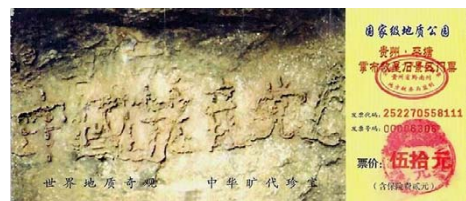 中国共产党
世界地质奇观 中华旷代珍宝
国家级地质公园
贵州·平塘
掌布藏字石景区门票
发票代码: 252270558111
发票号码: 00006306
票价: 伍拾元
(含保险费贰元)